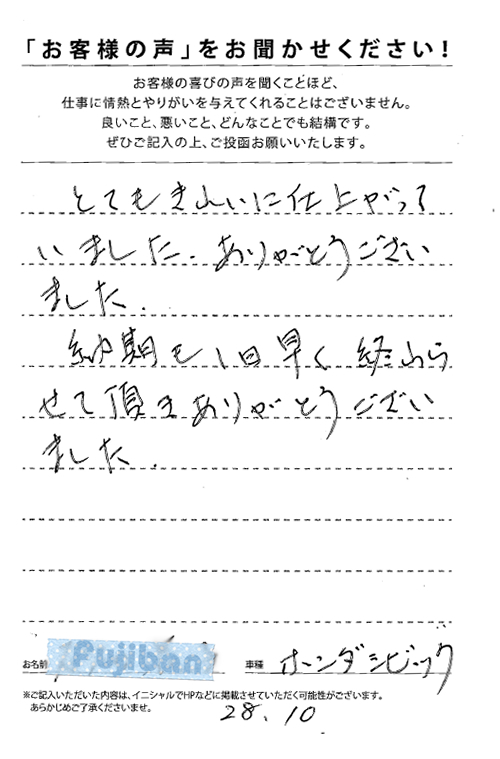 「お客様の声」をお聞かせください！
お客様の喜びの声を聞くことほど、
仕事に情熱とやりがいを与えてくれることはございません。
良いこと、悪いこと、どんなことでも結構です。
ぜひご記入の上、ご投函お願いいたします。
とてもきれいに仕上がって
いました。ありがとうござい
ました.
納期も1日早く終わら
せて頂きありがとうござい
ました.
お名前 Fujiban 車種 ホンダシビック
※ご記入いただいた内容は、イニシャルでHPなどに掲載させていただく可能性がございます。
あらかじめご了承くださいませ。
28.10